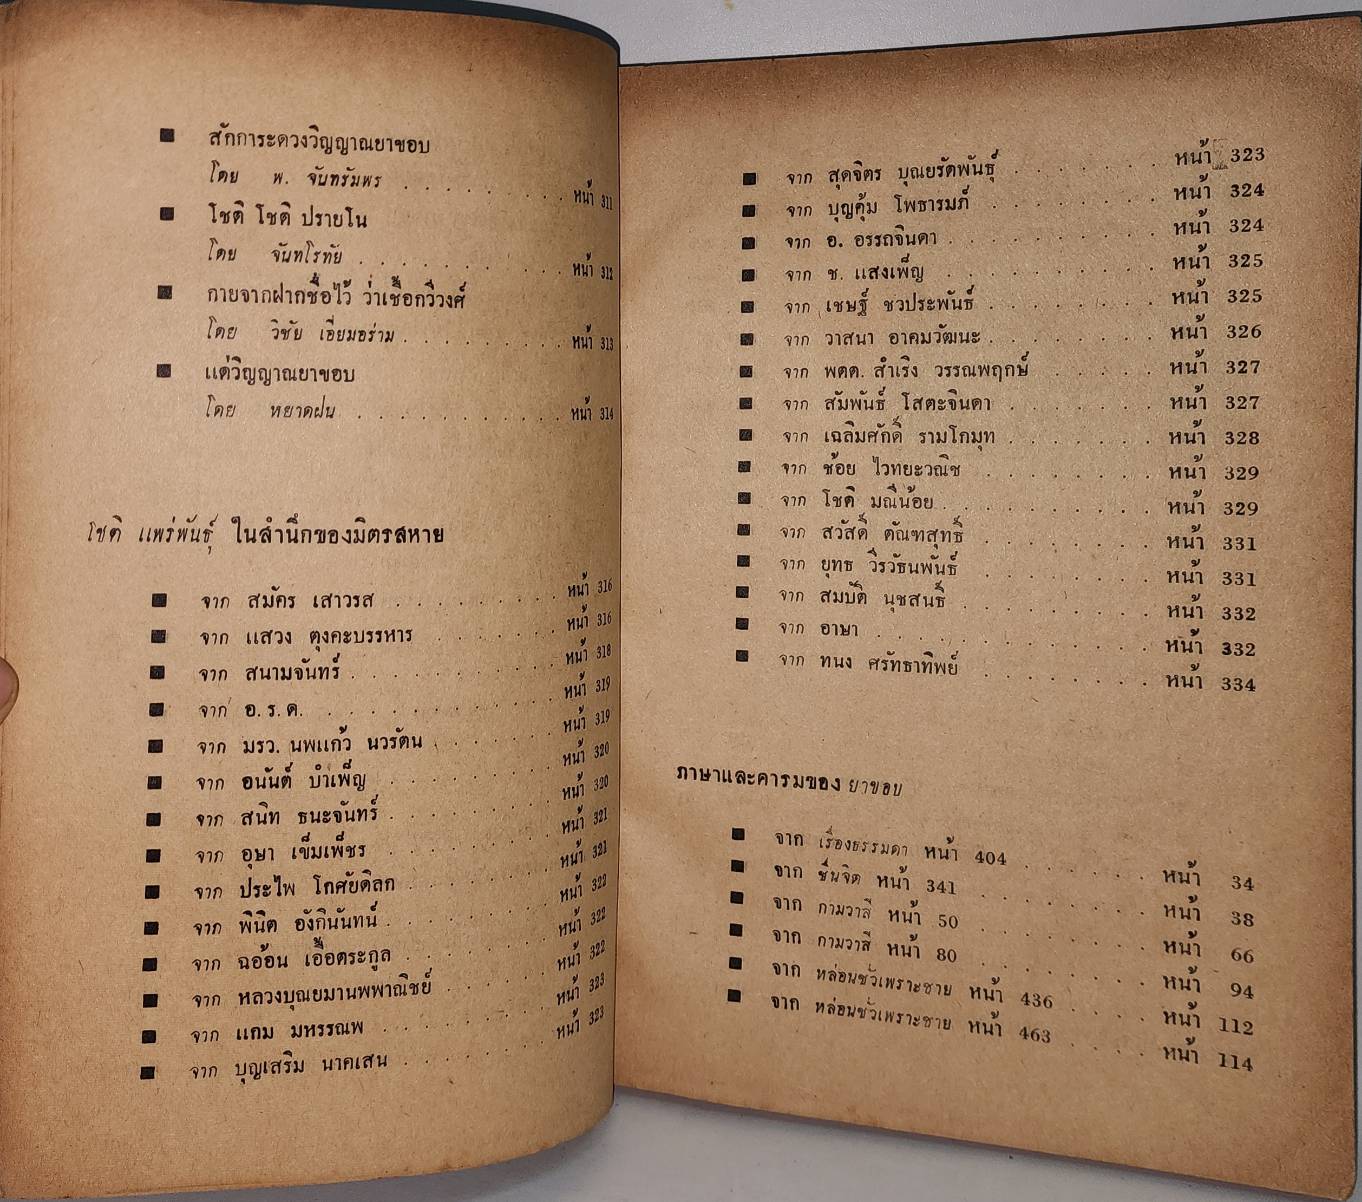 สักการะดวงวิญญาณยาขอบ
โดย พ. จันทรัมพร . . . . . . . . . หน้า 311
โชติ โชติ ปรายโน
โดย จันทโรทัย . . . . . . . . . . หน้า 312
กายจากฝากชื่อไว้ ว่าเชื้อกวีวงศ์
โดย วิชัย เอี่ยมอร่าม . . . . . . . . . หน้า 313
แด่วิญญาณยาขอบ
โดย หยาดฝน . . . . . . . . . . หน้า 314
โชติ แพร่พันธุ์ ในสำนึกของมิตรสหาย
จาก สมัคร เสาวรส . . . . . . . . หน้า 316
จาก แสวง ตุงคะบรรหาร . . . . . . หน้า 316
จาก สนามจันทร์ . . . . . . . . . หน้า 318
จาก อ.ร.ด. . . . . . . . . . . หน้า 319
จาก มรว. นพแก้ว นวรัตน . . . . . . หน้า 319
จาก อนันต์ บำเพ็ญ . . . . . . . . หน้า 320
จาก สนิท ธนะจันทร์ . . . . . . . . หน้า 320
จาก อุษา เข็มเพ็ชร . . . . . . . . หน้า 321
จาก ประไพ โกศัยดิลก . . . . . . . หน้า 321
จาก พินิต อังกินันทน์ . . . . . . . . หน้า 322
จาก ฉอ้อน เอื้อตระกูล . . . . . . . หน้า 322
จาก หลวงบุณยมานพพาณิชย์ . . . . . หน้า 322
จาก แถม มหรรณพ . . . . . . . . หน้า 323
จาก บุญเสริม นาคเสน . . . . . . . หน้า 323
จาก สุดจิตร บุณยรัตพันธุ์ . . . . . . หน้า 323
จาก บุญคุ้ม โพธารมภ์ . . . . . . . . หน้า 324
จาก อ. อรรถจินดา . . . . . . . . . หน้า 324
จาก ช. แสงเพ็ญ . . . . . . . . . หน้า 325
จาก เชษฐ์ ชวประพันธ์ . . . . . . . . หน้า 325
จาก วาสนา อาคมวัฒนะ . . . . . . . หน้า 326
จาก พตต. สำเริง วรรณพฤกษ์ . . . . . หน้า 327
จาก สัมพันธ์ โสตะจินดา . . . . . . . หน้า 327
จาก เฉลิมศักดิ์ รามโกมุท . . . . . . . หน้า 328
จาก ช้อย ไวทยะวณิช . . . . . . . . หน้า 329
จาก โชติ มณีน้อย . . . . . . . . . หน้า 329
จาก สวัสดิ์ ตัณฑสุทธิ์ . . . . . . . . หน้า 331
จาก ยุทธ วีรวัธนพันธ์ . . . . . . . . หน้า 331
จาก สมบัติ นุชสนธิ์ . . . . . . . . . หน้า 332
จาก อาษา . . . . . . . . . . . . หน้า 332
จาก ทนง ศรัทธาทิพย์ . . . . . . . . หน้า 334
ภาษาและคารมของ ยาขอบ
จาก เรื่องธรรมดา หน้า 404 . . . . . . หน้า 34
จาก ชื่นจิต หน้า 341 . . . . . . . . หน้า 38
จาก กามวาสี หน้า 50 . . . . . . . . หน้า 66
จาก กามวาสี หน้า 80 . . . . . . . . หน้า 94
จาก หล่อนชั่วเพราะชาย หน้า 436 . . . . หน้า 112
จาก หล่อนชั่วเพราะชาย หน้า 463 . . . . หน้า 114